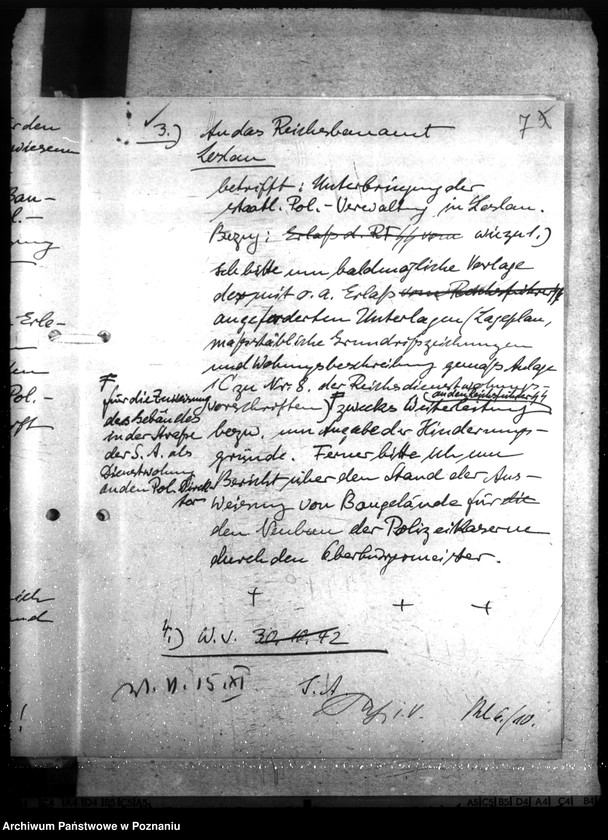 7
3.) An das Reichsbauamt
Leslau
betrifft: Unterbringung der
staatl. Pol.-Verwaltung in Leslau.
Bezug: Erlaß d. RFSS vom wie zu 1.)
Ich bitte um baldmögliche Vorlage
der mit o. a. Erlaß vom Reichsführer SS
angeforderten Unterlagen (Lageplan,
maßstäbliche Grundrißzeichnungen
und Wohnungsbeschreibung gemäß Anlage
1C zu Nr. 8. der Reichsdienstwohnungs-
vorschriften) F zwecks Weiterleitung
an den Reichsführer SS
F
für die Zuweisung
des Gebäudes
in der Straße
der S.A. als
Dienstwohnung
an den Pol. Direk-
tor
bezw. um Angabe der Hinderungs-
gründe. Ferner bitte ich um
Bericht über den Stand der Aus-
weisung von Baugelände für die
den Neubau der Polizeikaserne
durch den Oberbürgermeister.
4.) W.V. 30.11.42
15.XI
I.A.
i.V.
6./10.
den
wiesen
Bau-
Erle-
Pol.-
ich
und
!
Archiwum Państwowe w Poznaniu